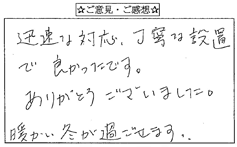 ☆ご意見・ご感想☆
迅速な対応、丁寧な設置
で良かったです。
ありがとうございました。
暖かい冬が過ごせます。